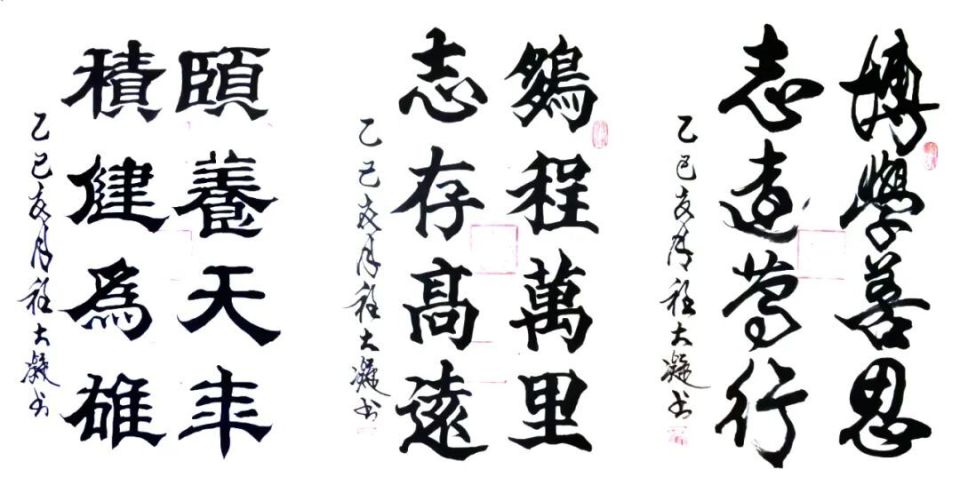 頤養天年
積健為雄
乙巳夏月程大凝书
鵬程萬里
志存髙遠
乙巳夏月程大凝书
博學善思
志遠篤行
乙巳夏月程大凝书